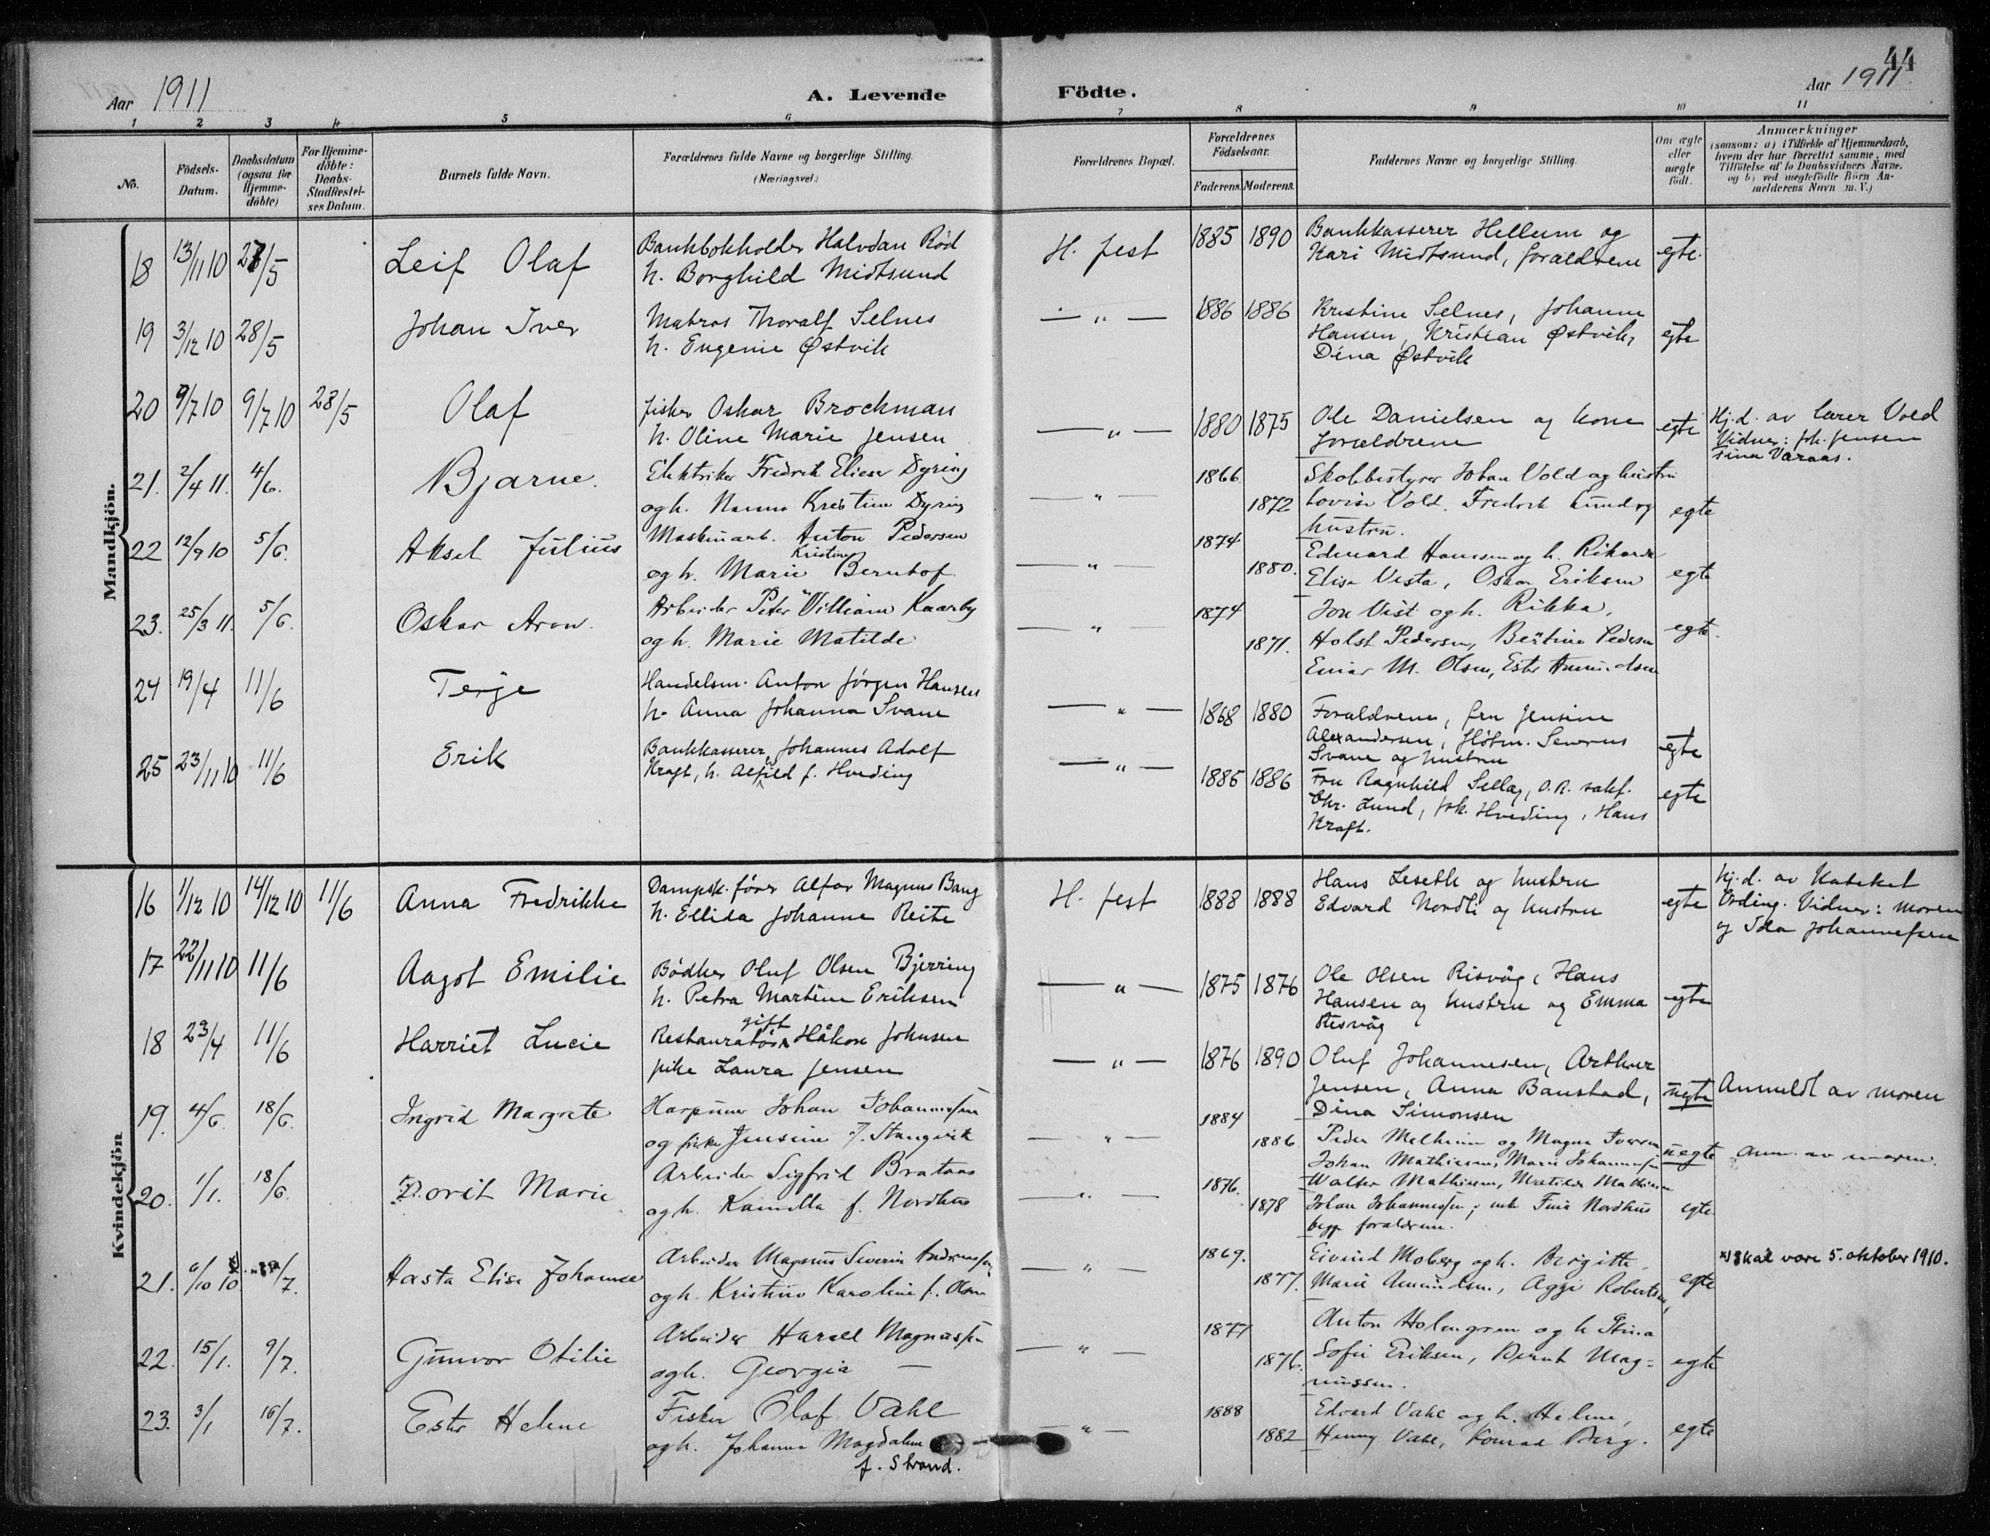 44
Aar 1911
A. Levende Födte.
Aar 1911
1 2 3 4 5 6 7 8 9 10 11
No.
Födsels-Datum.
Daabsdatum (ogsaa for Hjemme-döbte)
For Hjemme-döbte: Daabs-Stadfæstel-ses Datum.
Barnets fulde Navn.
Forældrenes fulde Navne og borgerlige Stilling. (Næringsvei.)
Forældrenes Bopæl.
Forældrenes Födselsaar.
Faderens. Moderens.
Faddernes Navne og borgerlige Stilling.
Om ægte eller uægte födt.
Anmærkninger
(saasom: a) i Tilfælde af Hjemmedaab, hvem der har forrettet samme, med Tilföielse af to Daabsvidners Navne. og b) ved uægtefödte Börn An-melderens Navn m. V.)
Mandkjön.
18 13/11 10 28/5 Leif Olaf Bankbokholder Halvdan Rød H. fest 1885 1890 Bankkasserer Hellum og egte.
h. Borghild Midtsund Kari Midtsund, forældrene
19 3/12 10 28/5 Johan Iver Matros Thoralf Selnes — " — 1886 1886 Kristine Selnes, Johanne egte
h. Eugenie Østvik Hansen, Kristian Østvik,
Dina Østvik
20 9/7 10 9/7 10 28/5 Olaf fisker Oskar Brockman — " — 1880 1875 Ole Danielsen og kone egte Hj.d. av lærer Vold
h. Oline Marie Jensen Forældrene Vidner: Joh. Jensen
21. 2/4 11. 4/6. Bjarne. Elektriker Fredrik Elieser Dyring " 1866 Skobbestyrer Johan Vold og hustru
og h. Nanna Kristine Dyring 1872 Lovise Vold. Fredrik Lund og egte
hustru.
22 12/9 10 5/6. Aksel Julius Maskinarb. Anton Pedersen " 1874 Edvard Hansen og h. Rikarda
og h. Marie Kristine Bernhof 1880. Elise Vesta, Oskar Eriksen egte
23. 25/3 11. 5/6. Oskar Aron. Arbeider Peter William Kaarby " 1874 Jon Vist og h. Rikka,
og h. Marie Matilde 1871. Holst Pedersen, Bertine Pedersen egte.
Einar M. Olsen, Ester Amundsen
24 19/4 11/6 Terje Handelsm. Anton Jørgen Hansen — " — 1868 1880 Forældrene, fru Jensine
h. Anna Johanna Svane Alexandersen, Severus egte
Svane og hustru
25 23/11 10 11/6 Erik Bankkasserer Johannes Adolf — " — 1885 1886 Fru Ragnhild Selläg, o.r. sakf. egte
Kraft, h. Alfild f. Hveding Chr. Lund, Joh. Hveding, Hans
Kraft.
Kvindekjön
16 1/12 10 14/12 10 11/6 Anna Fredrikke Dampsk. fører Alfor Magnus Bang H. fest 1888 1888 Hans Leseth og hustru egte Hj.d. av Kateket
h. Ellida Johanne Reite Edvard Nordli og hustru Ording. Vidner: moren
og Ida Johannesen
17 22/11 10 11/6 Aagot Emilie Bødker Oluf Olsen Bjerring — " — 1875 1876 Ole Olsen Risvåg, Hans egte
h. Petra Martine Eriksen Hansen og hustru og Emma
Risvåg
18 23/4 11/6 Harriet Lucie Restauratør gift Håkon Johnsen — " — 1876 1890 Oluf Johannesen, Arthur
pike Laura Jensen Jensen, Anna Banstad, uegte Anmeldt av moren
Dina Simonsen
19. 4/6. 18/6. Ingrid Margrete Harpuner Johan Johannessen " 1884
og pike Jensine J. Stangvik 1886. Peder Melheim og Magna uegte anm. av moren.
Johan Mathiesen, Marie Johannessen
20. 1/1. 18/6. Dorit Marie Arbeider Sigfrid Brataas " 1876. Walter Mathiesen, Matilde Mathiesen
og h. Kamilla f. Nordhus 1878 Johan Johannessen, Nordhus egte
begge forældrene.
21. 6/10 10 /7. Aasta Elise Johanne Arbeider Magnus Severin Andreassen " 1869. Eivind Moberg og h. Birgitte, x) skal være 5. oktober 1910.
og h. Kristine Karoline f. Olsen 1877. Marie Amundsen, Aggi Robertsen, egte
22. 15/1. 9/7. Gunvor Otilie Arbeider Harald Magnussen " 1877 Anton Holmgren og h. Stina
og h. Georgia — 1876. Sofie Eriksen, Bernt Mag= egte
nussen.
23. 3/1 16/7. Ester Helene Fisker Olaf Vahl " 1888 Edvard Vahl og h. Helene,
og h. Johanna Magdalene 1882 Henny Vahl, Konrad Berg. egte
f. Strand.